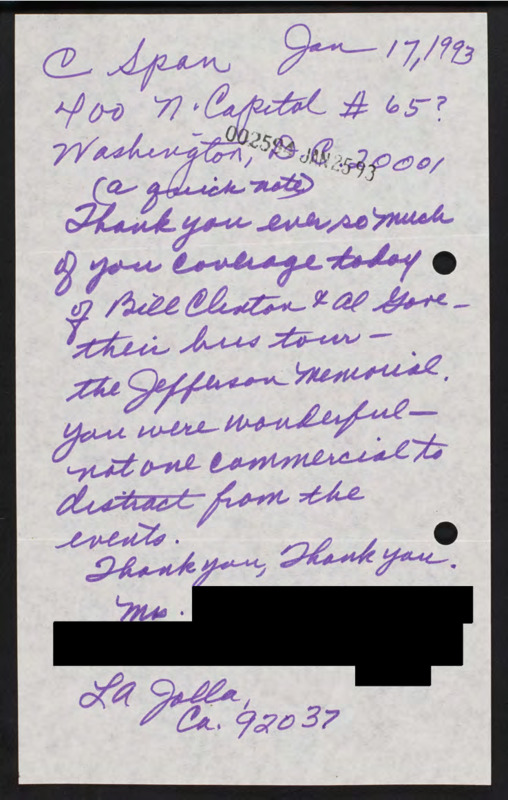 C Span Jan 17, 1993
400 N. Capitol # 65?
Washington, D.C. 20001
JAN 25 93
(a quick note)
Thank you ever so much
of you coverage today
of Bill Clinton & Al Gore –
their bus tour –
the Jefferson Memorial.
You were wonderful –
not one commercial to
distract from the
events.
Thank you, Thank you.
Mrs.
LA Jolla,
Ca. 92037